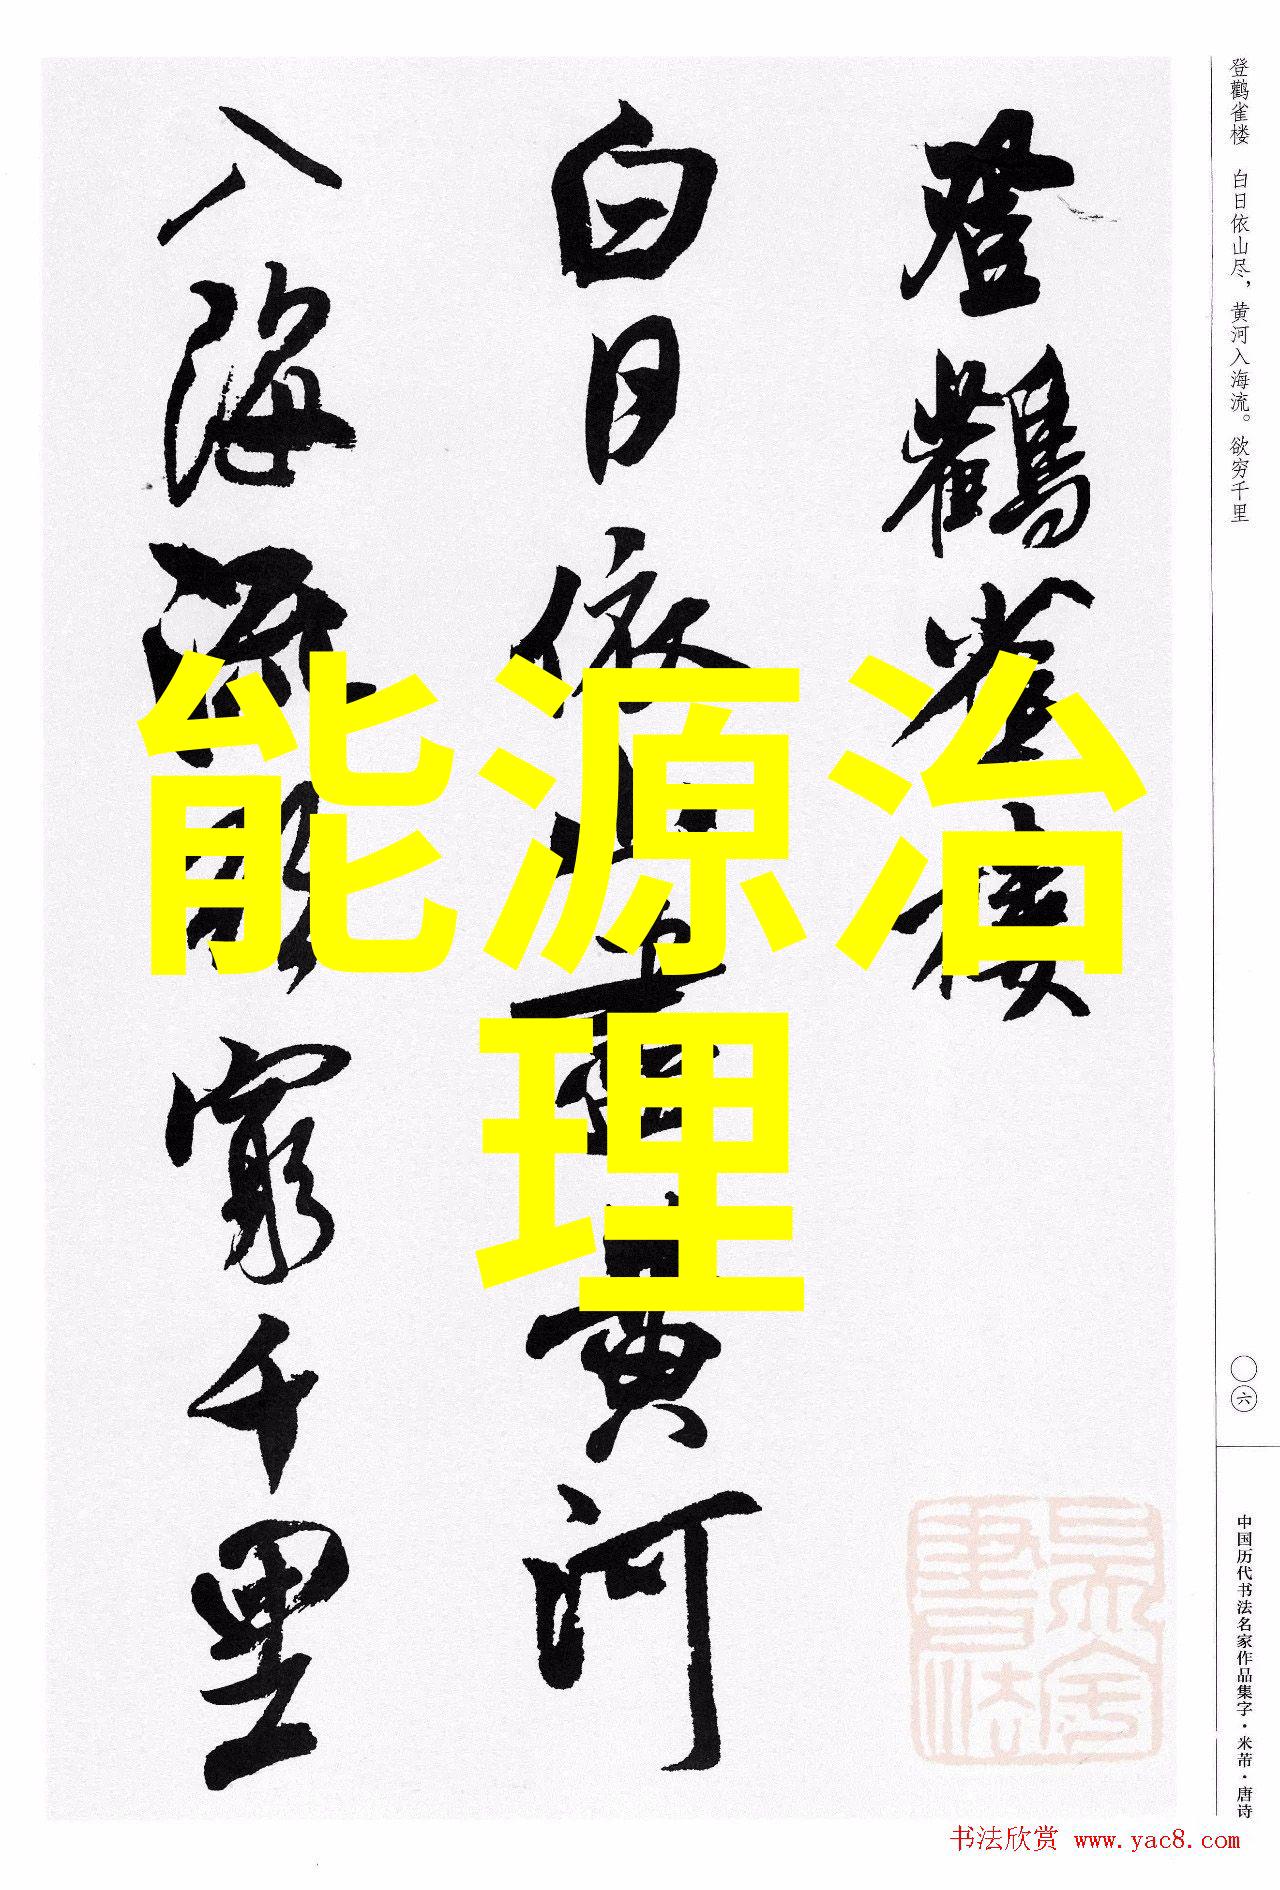 登鹳雀楼
白日依山尽黄河
入海流欲穷千里
能源治
理
登鹳雀楼 白日依山尽，黄河入海流。欲穷千里
〇六
中国历代书法名家作品集字·米芾·唐诗
书法欣赏 www.yac8.com